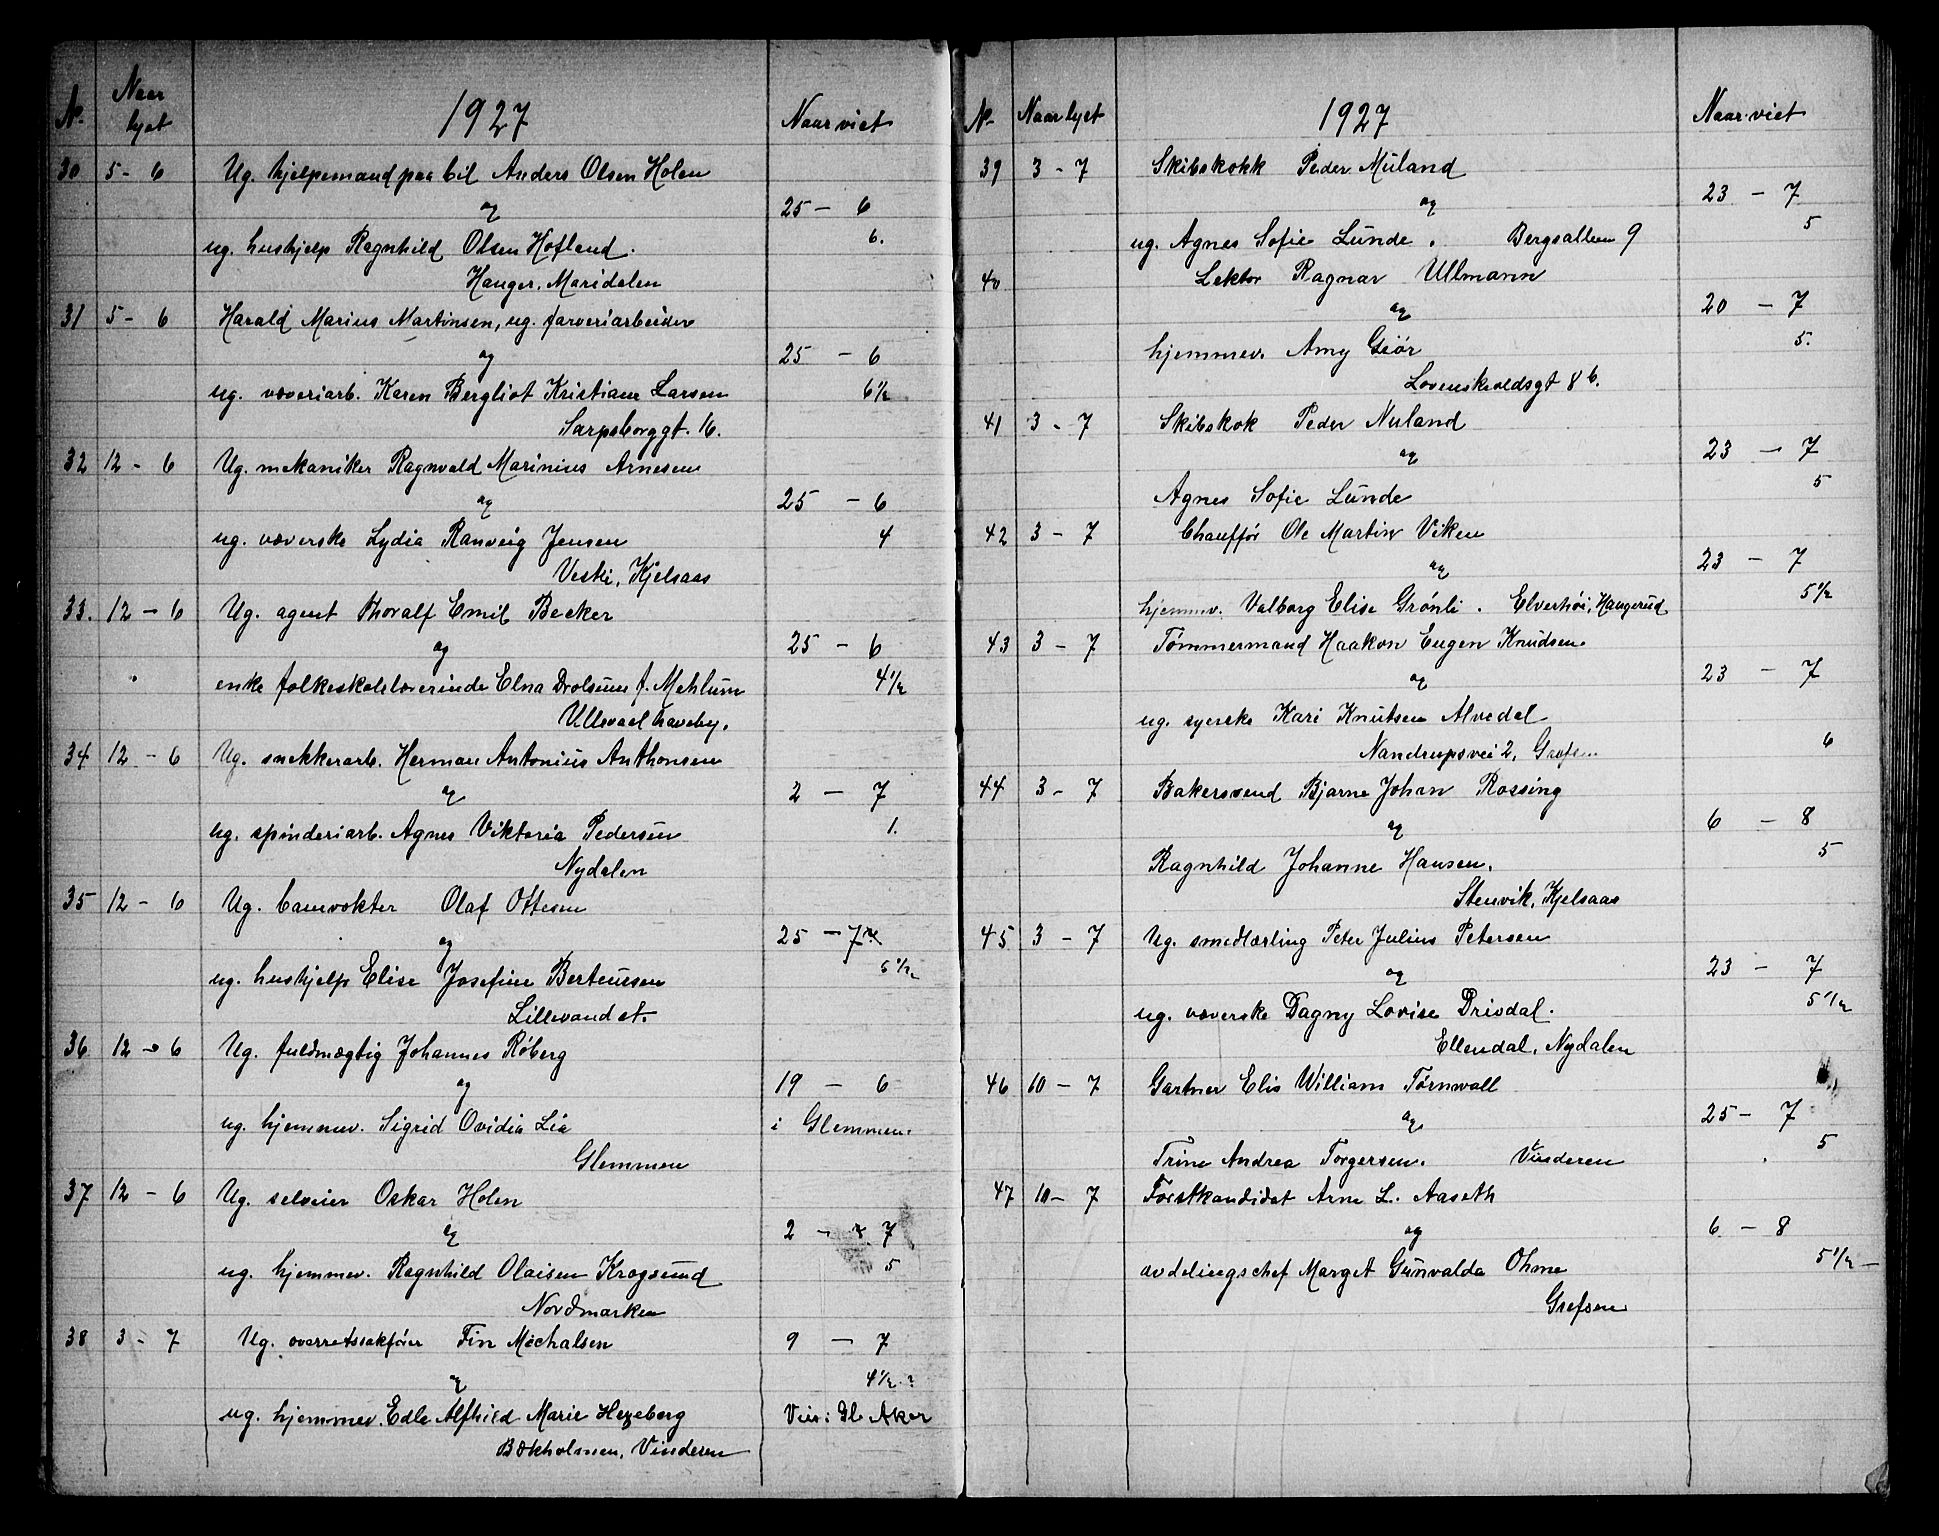 No. Naar lyst 1927 Naar viet
30 5 - 6 Ug. hjelpemand paa bil Anders Olsen Holen
og 25 - 6
ug. hushjelp Ragnhild Olsen Hofland. 6.
Hauger, Maridalen
31 5 - 6 Harald Marius Martinsen, ug. farveriarbeider
og 25 - 6
ug. væveriarb. Karen Bergliot Kristiane Larsen 6 1/2
Sarpsborggt. 16.
32 12 - 6 Ug. mekaniker Ragnvald Marinius Arnesen
og 25 - 6
ug. væverske Lydia Ranveig Jensen 4
Vestli, Kjelsaas
33. 12 - 6 Ug. agent Thoralf Emil Becker
og 25 - 6
enke folkeskolelærerinde Elna Drolsum f. Mehlum 4 1/2
Ullevaal haveby.
34 12 - 6 Ug. snekkerarb. Herman Antonius Anthonsen
og 2 - 7
ug. spinderiarb. Agnes Viktoria Pedersen 1.
Nydalen
35 12 - 6 Ug. banevokter Olaf Ottesen
og 25 - 7
ug. hushjelp Elise Josefine Berteussen 5 1/2
Lillevand st.
36 12 - 6 Ug. fuldmægtig Johannes Røberg
og 19 - 6
ug. hjemmev. Sigrid Ovidia Lie i Glemmen.
Glemmen
37 12 - 6 Ug. selveier Oskar Holen
og 2 - 7
ug. hjemmev. Ragnhild Olaisen Krogsund 5
Nordmarken
38 3 - 7 Ug. overretssakfører Fin Michalsen 9 - 7
og 4 1/2
ug. hjemmev. Edle Alfhild Marie Hegeberg Vies i Gl. Aker
Bækholmen, Vinderen
No. Naar lyst 1927 Naar viet
39 3 - 7 Skibskokk Peder Nuland
og 23 - 7
ug. Agnes Sofie Lunde. Bergsalleen 9 5
40 Lektor Ragnar Ullmann
og 20 - 7
hjemmev. Amy Giør 5.
Lovenskioldsgt 8 b.
41 3 - 7 Skibskok Peder Nuland
og 23 - 7
Agnes Sofie Lunde 5
42 3 - 7 Chauffør Ole Martin Viken
og 23 - 7
hjemmev. Valborg Elise Grønli. Elverhøi, Haugerud 5 1/2
43 3 - 7 Tømmermand Haakon Eugen Knudsen
og 23 - 7
ug. syerske Kari Knutsen Alvedal
Nandrupsvei 2, 6
44 3 - 7 Bakersvend Bjarne Johan Rossing
og 6 - 8
Ragnhild Johanne Hansen. 5
Stenvik, Kjelsaas
45 3 - 7 Ug. smedlærling Peter Julius Petersen
og 23 - 7
ug. væverske Dagny Lovise Drivdal. 5 1/2
Ellendal, Nydalen
46 10 - 7 Gartner Elis William Törnwall
og 25 - 7
Trine Andrea Torgersen. Vinderen 5
47 10 - 7 Forstkandidat Arne L. Aaseth
og 6 - 8
avdelingschef Margit Gunvalda Ohme 5 1/2
Grefsen